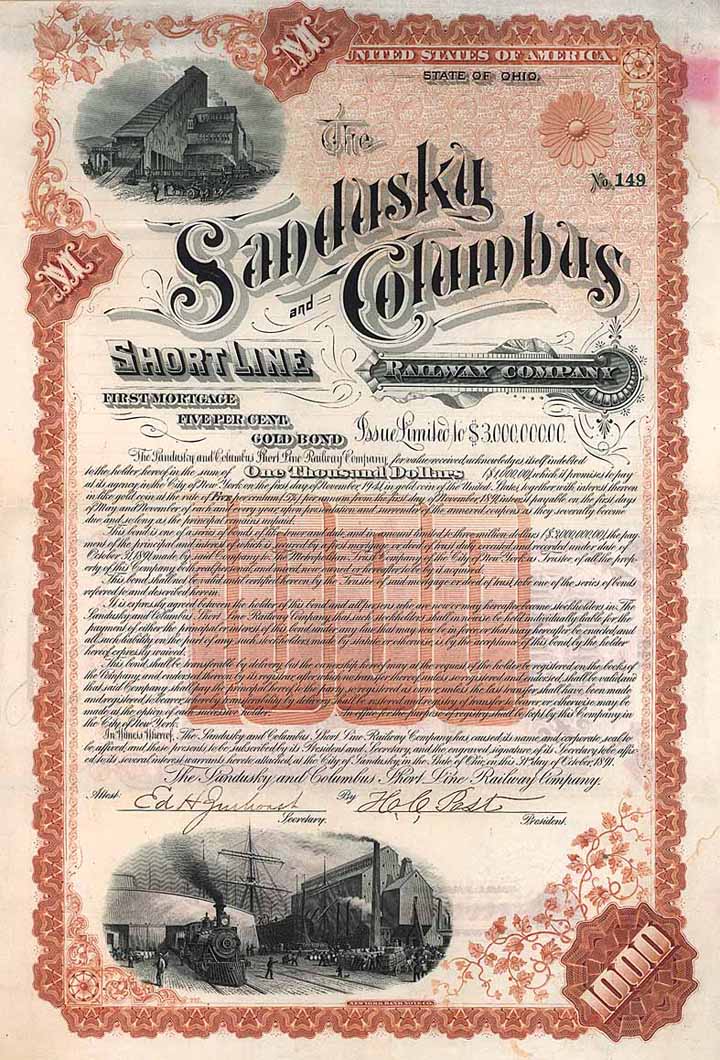 M
UNITED STATES OF AMERICA.
STATE OF OHIO.
The
No. 149
Sandusky
M
and Columbus
SHORT LINE
RAILWAY COMPANY
FIRST MORTGAGE
FIVE PER CENT.
GOLD BOND
Issue Limited to $3,000,000.00.
The Sandusky and Columbus Short Line Railway Company, for value received, acknowledges itself indebted
to the holder hereof in the sum of One Thousand Dollars ($1,000.00), which it promises to pay
at its agency in the City of New York on the first day of November, 1941, in gold coin of the United States, together with interest thereon
in like gold coin at the rate of Five per centum (5%) per annum from the first day of November 1891, interest payable on the first days
of May and November of each and every year, upon presentation and surrender of the annexed coupons as they severally become
due and so long as the principal remains unpaid.
This bond is one of a series of bonds of like tenor and date, and in amount limited to three million dollars ($3,000,000.00), the pay-
ment of the principal and interest of which is secured by a first mortgage or deed of trust duly executed and recorded under date of
October 31, 1891, made by said Company to The Metropolitan Trust Company of the City of New York, as Trustee of all the prop-
erty of this Company both real, personal, and mixed, now owned or hereafter to be by it acquired.
This bond shall not be valid until certified hereon by the Trustee of said mortgage or deed of trust, to be one of the series of bonds
referred to and described herein.
It is expressly agreed between the holder of this bond and all persons who are now or may hereafter become stockholders in The
Sandusky and Columbus Short Line Railway Company, that such stockholders shall in no wise be held individually liable for the
payment of either the principal or interest of this bond under any law that may now be in force or that may hereafter be enacted, and
all such liability on the part of any such shareholders made by statute or otherwise, is by the acceptance of this bond, by the holder
hereof, expressly waived.
This bond shall be transferable by delivery, but the ownership hereof may at the request of the holder be registered on the books of
the Company, and endorsed thereon by its registrar, after which no transfer hereof unless so registered and indorsed, shall be valid, and
that said Company shall pay the principal hereof to the party so registered as owner, unless the last transfer shall have been made
and registered to bearer, whereby transferability by delivery shall be restored and registry of transfer to bearer or otherwise, may be
made at the option of each successive holder, and an office for the purposes of registry shall be kept by this Company in
the City of New York.
In Witness Whereof, The Sandusky and Columbus Short Line Railway Company has caused its name and corporate seal to
be affixed, and these presents to be subscribed by its President and Secretary, and the engraved signature of its Secretary to be affix-
ed to its several interest warrants hereto attached, at the City of Sandusky, in the State of Ohio, on this 31st day of October, 1891.
The Sandusky and Columbus Short Line Railway Company.
Attest: By H. C. Post
Secretary. President.
1000
1000
NEW YORK BANK NOTE CO.